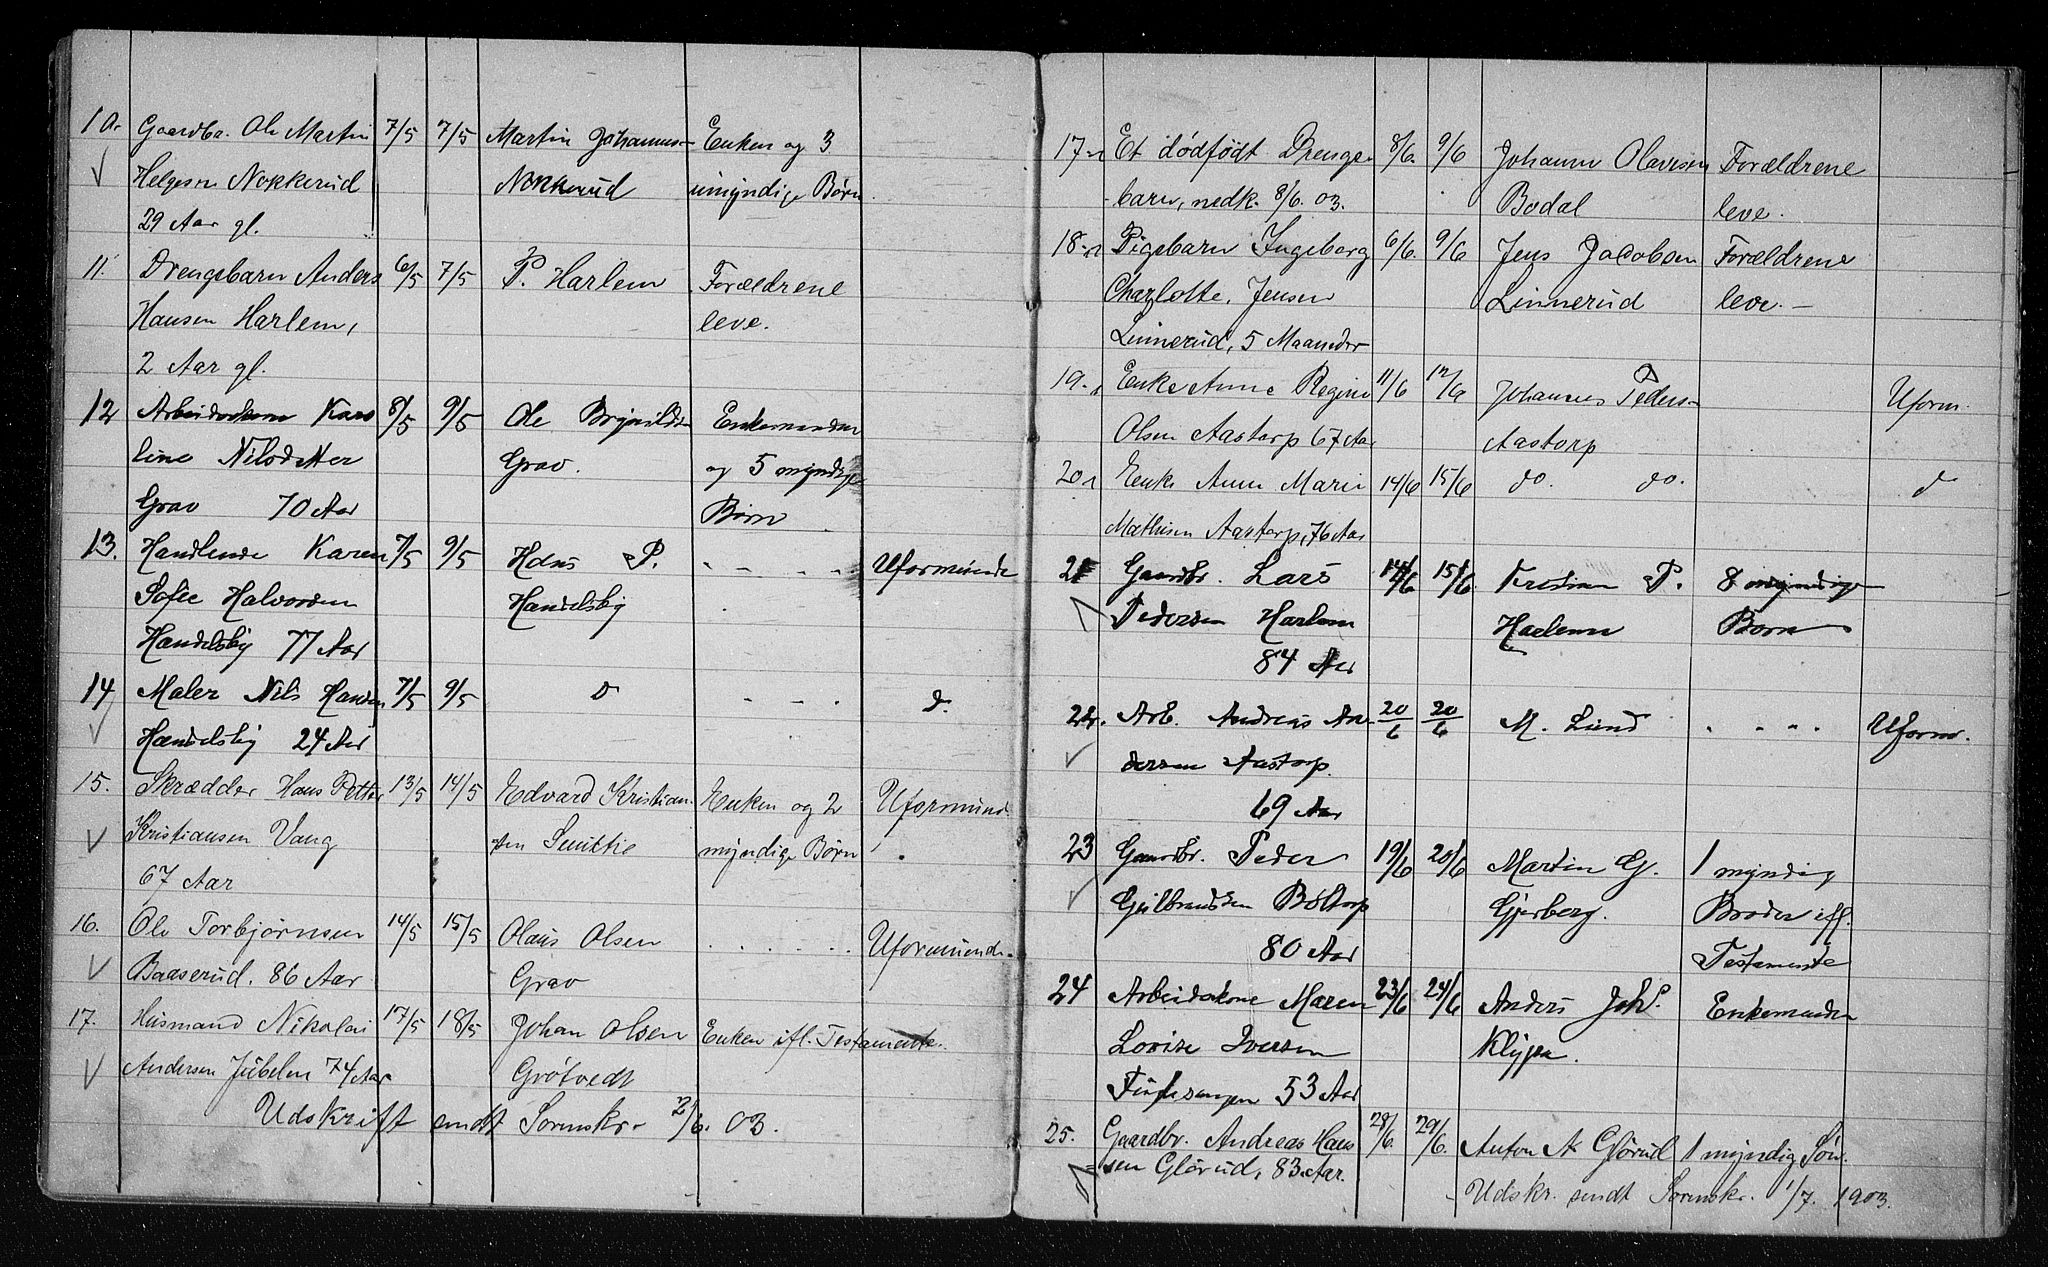 10. Gaardbr. Ole Martin 7/5 7/5 Martin Johannes- Enken og 3
Helgesen Nokkerud Nokkerud umyndige Børn.
29 Aar gl.
11. Drengebarn Anders 6/5 7/5 P. Harlem Forældrene
Hansen Harlem, leve.
2 Aar gl.
12 Arbeiderkone Karo 8/5 9/5 Ole Brynildsen Enkemanden
line Nilsdatter Grav. og 5 myndige
Grav 70 Aar Børn
13. Handlende Karen 7/5 9/5 Hans P. - - - - Uformuende
Sofie Halvorsen Handelsby
Handelsby 77 Aar
14 Maler Nils Hansen 7/5 9/5 D - - - D.
Handelsby 24 Aar
15. Skrædder Hans Petter 13/5 14/5 Edvard Kristian- Enken og 2 Uformuend.
Kristiansen Vang sen Smittie myndige Børn
67 Aar
16. Ole Torbjørnsen 14/5 15/5 Olaus Olsen . . . . . . Uformuende.
Baaserud. 86 Aar Grav
17. Husmand Nikolai 17/5 18/5 Johan Olsen Enken ifl. Testamente.
Andersen Jübelen 74 Aar Grøtvedt
Udskrift sendt Sorenskr. 2/6. 03.
17 Et dødfødt Drenge- 8/6. 9/6 Johann Olavesen Forældrene
barn, nedk. 8/6. 03. Bodal leve.
18 Pigebarn Ingeborg 6/6. 9/6 Jens Jacobsen Forældrene
Charlotte, Jensen Linnerud leve. -
Linnerud, 5 Maaneder
19. Enke Anne Regine 11/6 12/6 Johannes Peders- Uform.
Olsen Aastorp 67 Aar Aastorp
20 Enke Anne Marie 14/6 15/6 do. do. d
Mathisen Aastorp, 76 Aar
21 Gaardbr. Lars 14/6 15/6. Kristian P. 8 myndige
Pedersen Harlem Harlem Børn
84 Aar
22. Arb. Andreas An- 20/6 20/6 M. Lund . . . . Uform.
dersen Aastorp.
69 Aar
23 Gaardbr. Peder 19/6 20/6 Martin G. 1 myndig
Gulbrandsen Bøltorp Gjerberg. Broder ifl.
80 Aar Testamente
24 Arbeiderkone Maren 23/6 24/6 Anders Joh. Enkemanden
Lovise Iversen Klypen.
53 Aar
25. Gaardbr. Andreas Han 28/6. 29/6. Anton A. Glørud 1 myndig Søn.
sen Glørud, 83 Aar.
Udskr. sendt Sorenskr. 1/7. 1903.